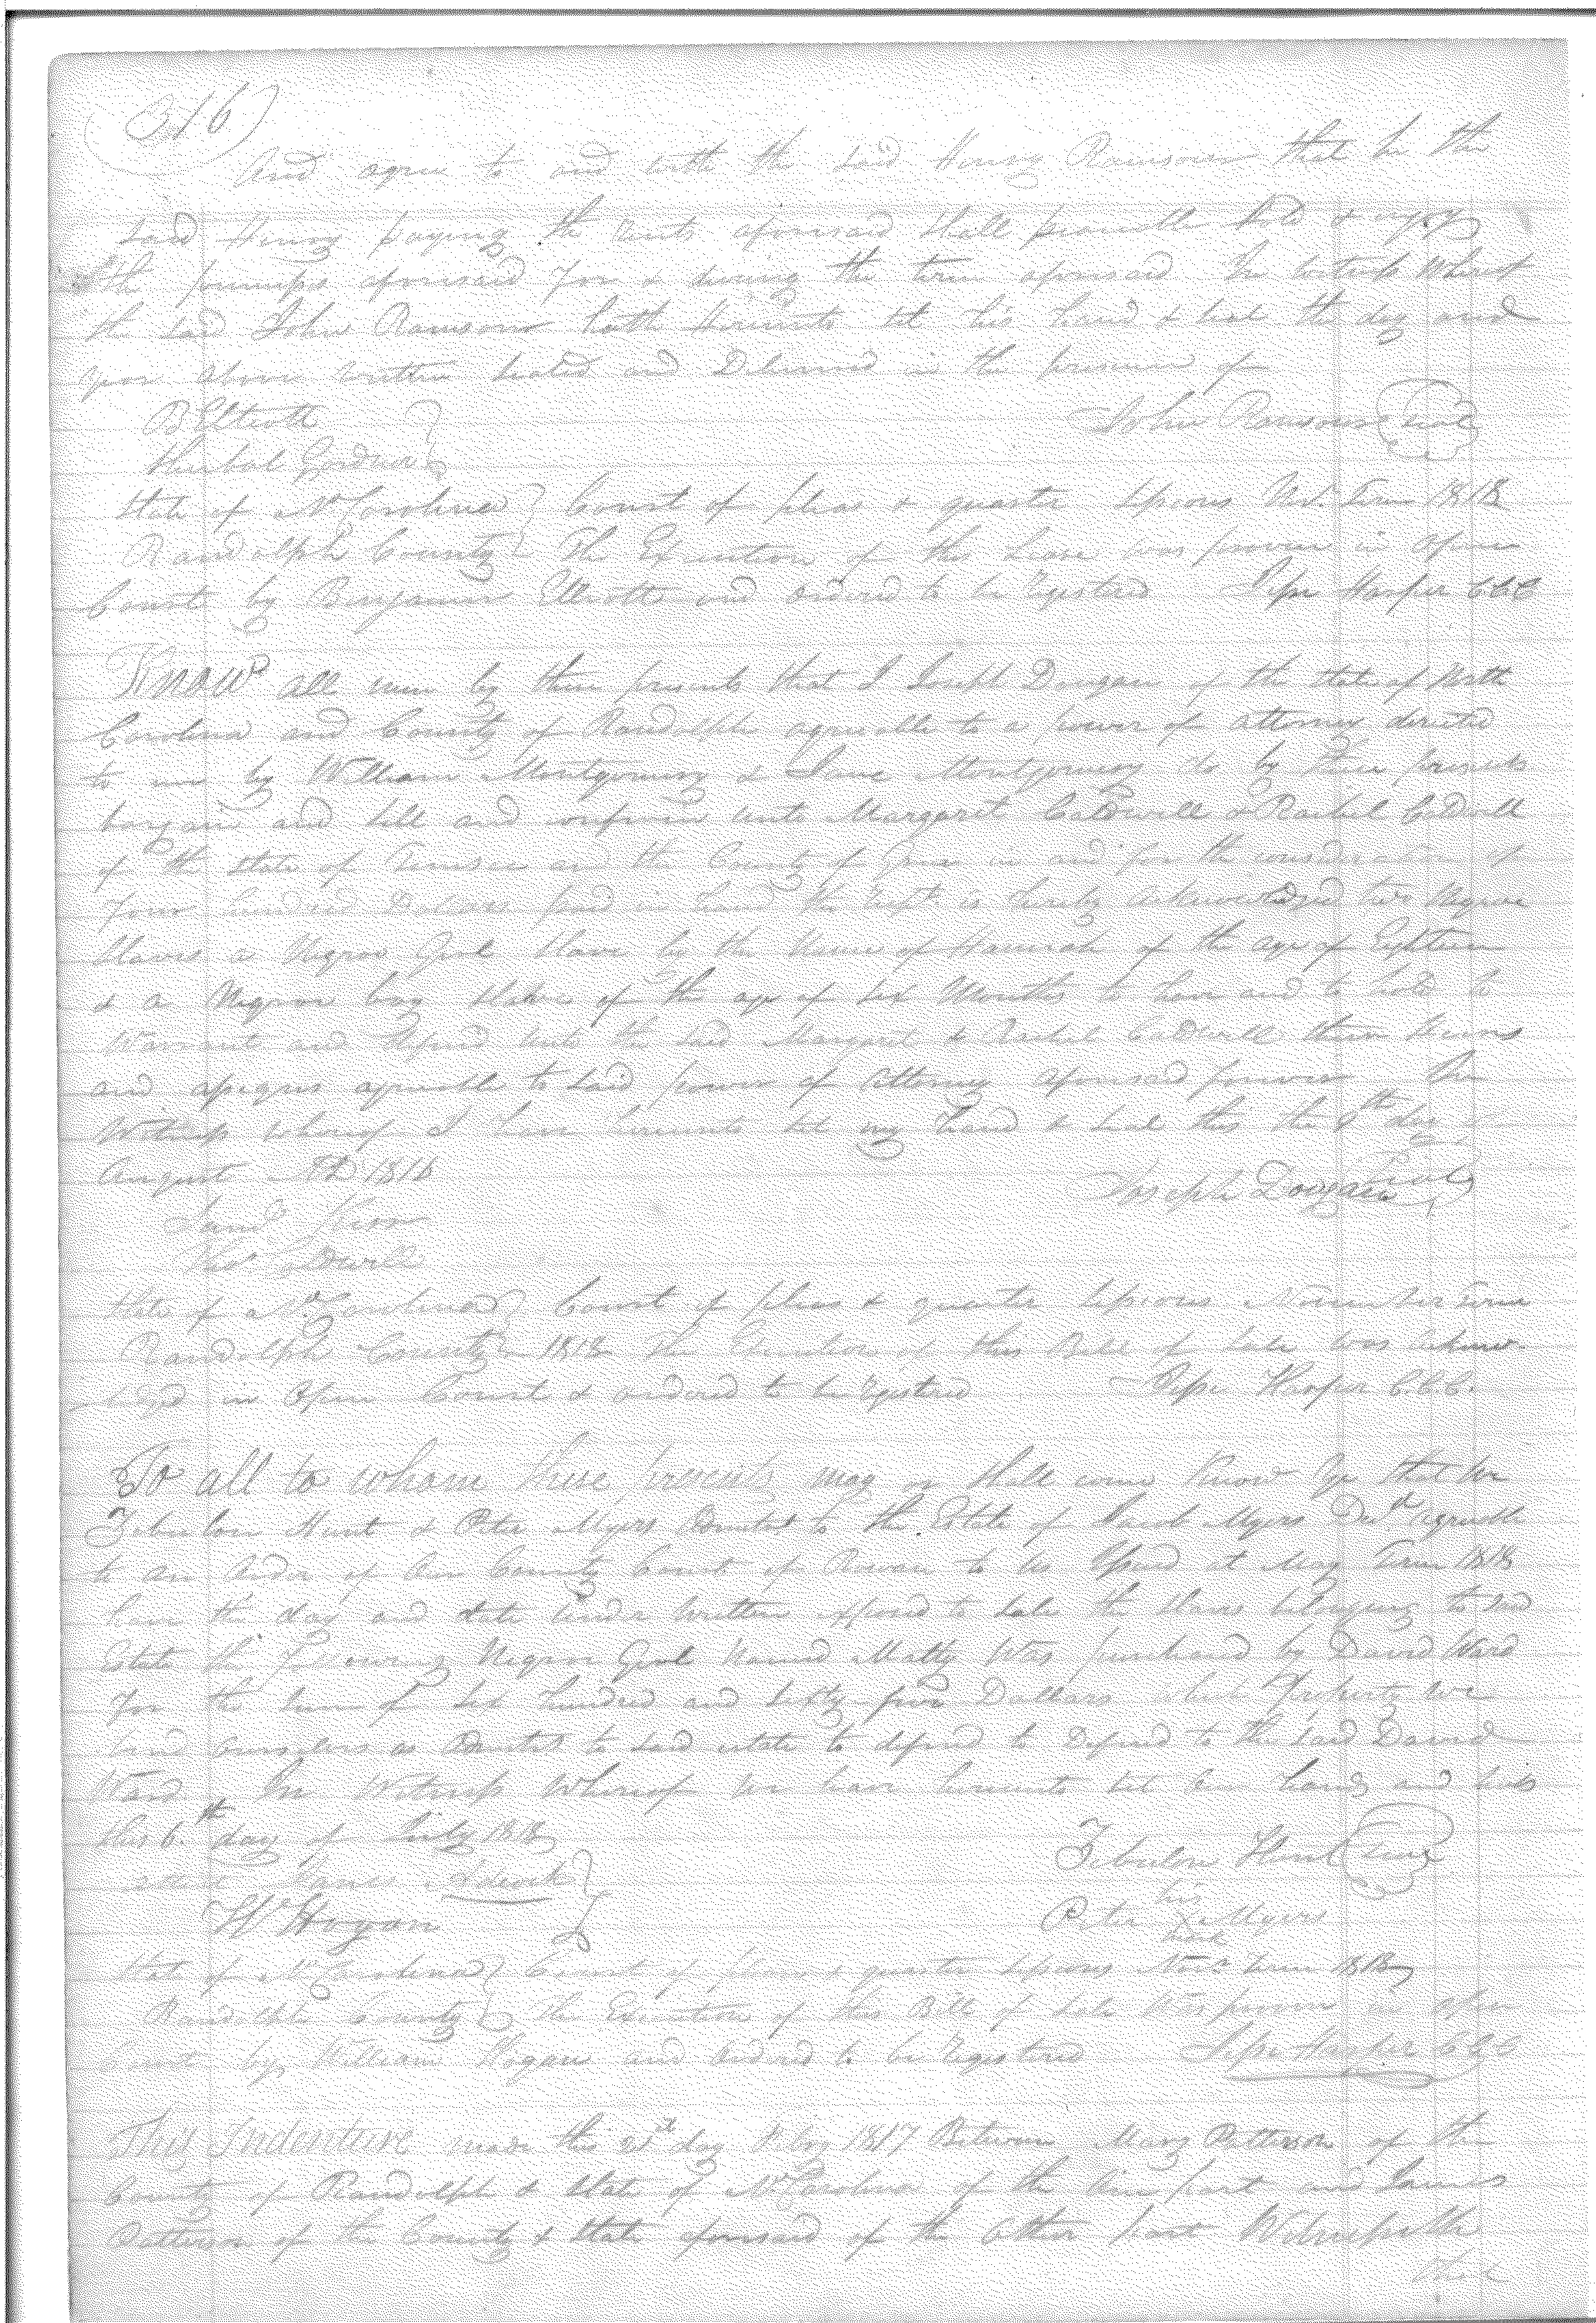 316
And agree to and with the said Henry Ramsour that he the
said Henry paying the rents aforesaid shall peaceable hold & enjoy
the premises aforesaid for & during the term aforesaid In witness whereof
the said John Ramsour hath hereunto set his hand & seal the day and
year above written sealed and Delivered in the presence of
B Elliott
John Ramsour seal
State of N Carolina Court of pleas & quarter sessions Nov. Term 1818
Randolph County The Execution of this Lease was proven in open
Court by Benjamin Elliott and ordered to be registered Jesse Harper CCC
Know all men by these presents that I Joseph Dougan of the State of North
Carolina and County of Randolph agreeable to a power of attorney directed
to me by William Montgomery & Montgomery do by these presents
bargain and sell and confirm unto Margaret Caldwell & Rachel Caldwell
of the State of Tennessee and the County of in and for the consideration of
four hundred Dollars paid in hand the rect is hereby acknowledged two Negroe
Slaves a Negroe Girl Slave by the Name of Hannah of the age of Eighteen
& a Negroe boy of the age of six Months to have and to hold to
Warrant and Defend unto the said Margaret & Rachel Caldwell their heirs
and assigns agreeable to said power of attorney aforesaid power In
Witness whereof I have hereunto set my hand & seal this the 8th day
August AD 1818
Joseph Dougan seal
Caldwell
State of N Carolina Court of pleas & quarter sessions November Term
Randolph County 1818 The Execution of this Bill of sale was acknow-
ledged in Open Court & ordered to be registered Jesse Harper C.C.C.
To all to whom these presents may or shall come Know Ye that we
Zebulon Hunt & Peter Myers to the Estate of Myers Decd agreeable
to an order of our County Court of Rowan to us Issued at May Term 1818
have the day and date under written exposed to sale the slaves belonging to sd
Estate the following Negroe Girl Named Matty was purchased by David Ward
for the sum of six hundred and sixty four Dollars which Property we
bind ourselves as to said estate to defend to Defend to the said David
Ward In Witness whereof we have hereunto set our hands and seals
this 6th day of July 1818
Zebulon Hunt seal
Attest James
Wm Hogan
Peter his X mark Myers
State of N Carolina Court of pleas & quarter sessions Novr Term 1818
Randolph County The Execution of this Bill of sale was proven in open
Court by William Hogan and ordered to be registered Jesse Harper CCC
This Indenture made this 21st day Feby 1817 Between Mary Patterson of the
County of Randolph & State of N Carolina of the one part and James
Patterson of the County & State aforesaid of the other part Witnesseth